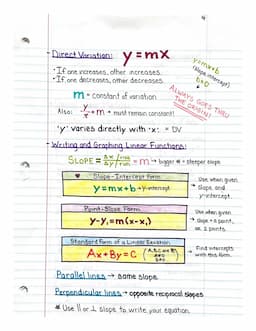 - Direct Variation: y=mx
y=mx+b
(slope intercept)
b=0
- If one increases, other increases.
- If one decreases, other decreases.
ALWAYS GOES THRU
THE ORIGIN!
m = constant of variation
Also: y/x = m → must remain constant!
"y" varies directly with "x" = DV
- Writing and Graphing Linear Functions:
= m → bigger # = steeper slope
Slope-Intercept Form
y=mx+b
y-intercept
Use when given
slope and
y-intercept.
Point-Slope Form
y-y₁=m(x-x₁)
Use when given
slope + a point,
or 2 points.
Standard Form of a Linear Equation
Ax+By=C
Find intercepts
with this form.
Parallel lines → same slope
Perpendicular lines → opposite reciprocal slopes
* Use || or ⊥ slope to write your equation.